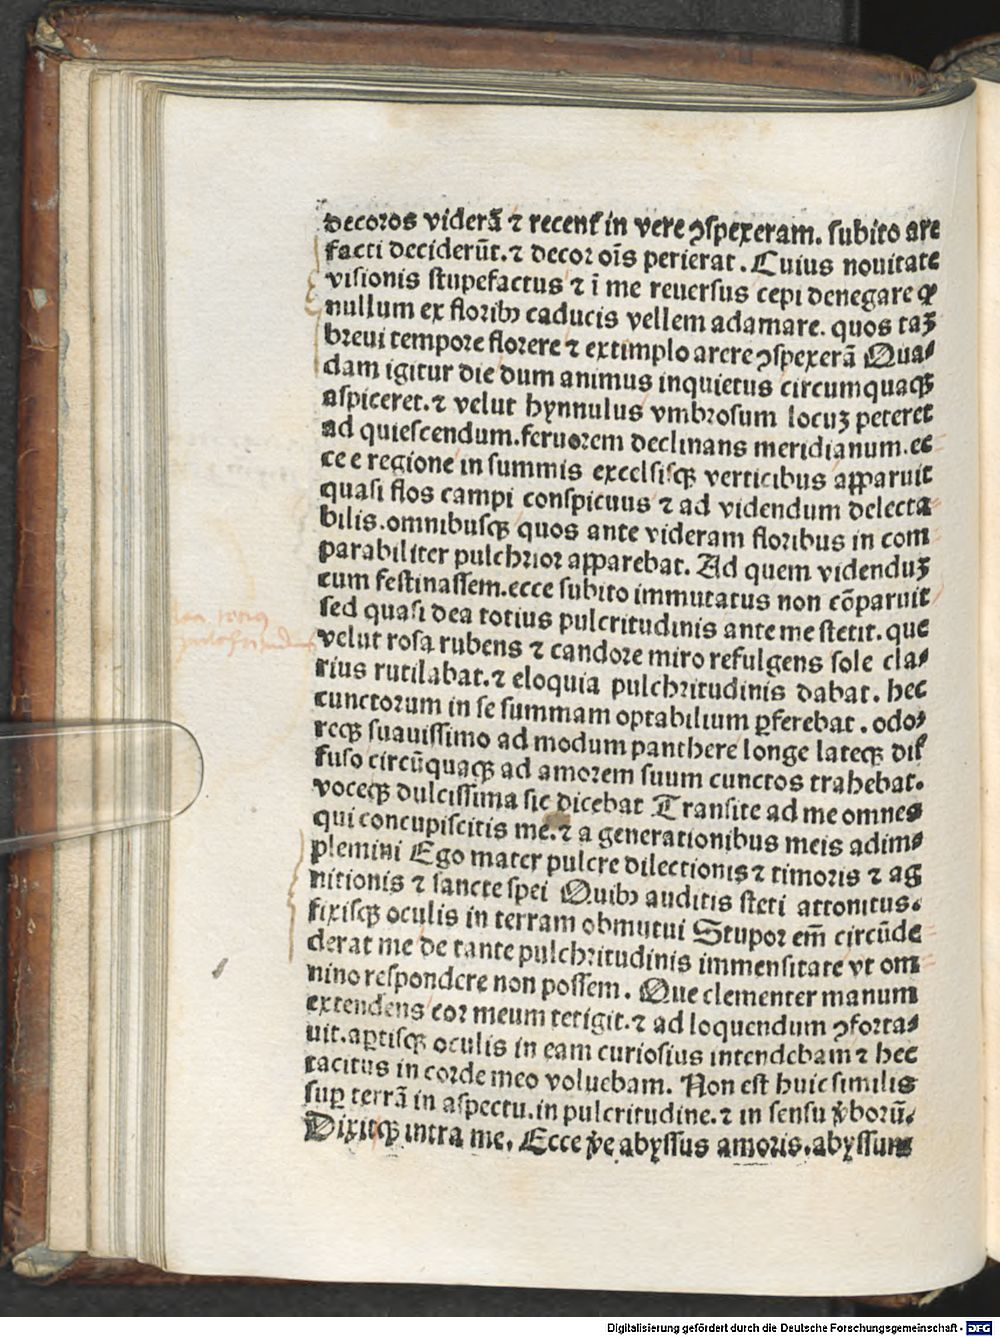 decoros viderā ⁊ recenť in vere ꝯspexeram. subito are
facti deciderūt. ⁊ decor oīs perierat. Cuius nouitate
visionis stupefactus ⁊ ī me reuersus cepi denegare ꝙ
nullum ex floribꝰ caducis vellem adamare. quos taꝫ
breui tempore florere ⁊ extimplo arere ꝯspexerā Qua⸗
dam igitur die dum animus inquietus circumquaqꝫ
aspiceret. ⁊ velut hynnulus vmbrosum locuꝫ peteret
ad quiescendum. feruorem declinans meridianum. ec
ce e regione in summis excelsisqꝫ verticibus apparuit
quasi flos campi conspicuus ⁊ ad videndum delecta
bilis. omnibusqꝫ quos ante videram floribus in com
parabiliter pulchrior apparebat. Ad quem videnduꝫ
cum festinassem. ecce subito immutatus non cōparuit
sed quasi dea totius pulcritudinis ante me stetit. que
velut rosa rubens ⁊ candore miro refulgens sole cla⸗
rius rutilabat. ⁊ eloquia pulchritudinis dabat. hec
cunctorum in se summam optabilium ꝑferebat. odo⸗
reqꝫ suauissimo ad modum panthere longe lateqꝫ dif
fuso circūquaqꝫ ad amorem suum cunctos trahebat.
voceqꝫ dulcissima sic dicebat Transite ad me omnes
qui concupiscitis me. ⁊ a generationibus meis adim⸗
plemini Ego mater pulcre dilectionis ⁊ timoris ⁊ ag
nitionis ⁊ sancte spei Quibꝰ auditis steti attonitus.
fixisqꝫ oculis in terram obmutui Stupor em̄ circūde
derat me de tante pulchritudinis immensitate vt om
nino respondere non possem. Que clementer manum
extendens cor meum tetigit. ⁊ ad loquendum ꝯforta⸗
uit. aꝑtisqꝫ oculis in eam curiosius intendebam ⁊ hec
tacitus in corde meo voluebam. Non est huic similis
suꝑ terrā in aspectu. in pulcritudine. ⁊ in sensu v̾borū.
Dixitqꝫ intra me. Ecce v̾e abyssus amoris. abyssum
Digitalisierung gefördert durch die Deutsche Forschungsgemeinschaft - DFG